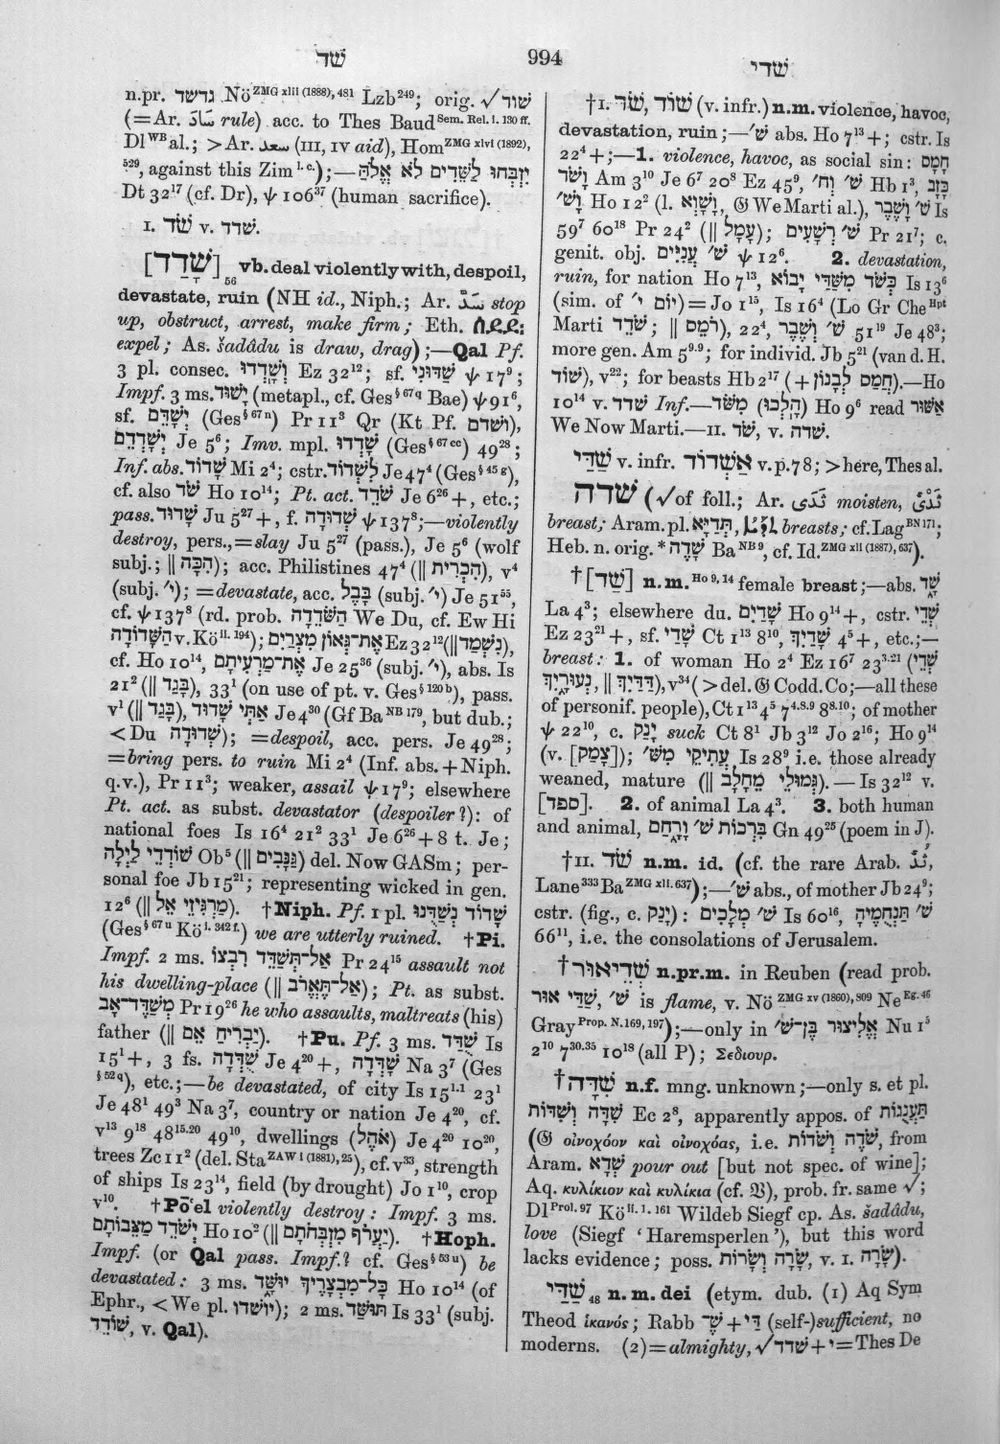 שׁד
994
שׁדי
n.pr. גדשד Nö ZMG xlii (1888), 481 Lzb 249; orig. √שׁוד
(=Ar. سَادَ rule) acc. to Thes Baud Sem. Rel. i. 130 ff.
Dl WB al.; >Ar. سعد (III, IV aid), Hom ZMG xlvi (1892),
529, against this Zim l. c.);—יִזְבְּחוּ לַשֵּׁדִים לֹא אֱלֹהַּ
Dt 32¹⁷ (cf. Dr), ψ 106³⁷ (human sacrifice).
I. שֹׁד v. שׁדד.
[שָׁדַד] 56 vb. deal violently with, despoil,
devastate, ruin (NH id., Niph.; Ar. سَدَّ stop
up, obstruct, arrest, make firm; Eth. ሰደደ:
expel; As. šadâdu is draw, drag);—Qal Pf.
3 pl. consec. וְשָׁדְדוּ Ez 32¹²; sf. שַׁדּוּנִי ψ 17⁹;
Impf. 3 ms. יָשׁוּד (metapl., cf. Ges § 67 q Bae) ψ 91⁶,
sf. יְשָׁדֵּם (Ges § 67 n) Pr 11³ Qr (Kt Pf. ושדם),
יְשָׁדְדֵם Je 5⁶; Imv. mpl. שָׁדְדוּ (Ges § 67 cc) 49²⁸;
Inf. abs. שָׁדוֹד Mi 2⁴; cstr. לִשְׁדוֹד Je 47⁴ (Ges § 45 g),
cf. also שֹׁד Ho 10¹⁴; Pt. act. שֹׁדֵד Je 6²⁶ +, etc.;
pass. שָׁדוּד Ju 5²⁷ +, f. שְׁדוּדָה ψ 137⁸;—violently
destroy, pers.,=slay Ju 5²⁷ (pass.), Je 5⁶ (wolf
subj.; ‖ הִכָּה); acc. Philistines 47⁴ (‖ הִכְרִית), v⁴
(subj. י׳); =devastate, acc. בָּבֶל (subj. י׳) Je 51⁵⁵,
cf. ψ 137⁸ (rd. prob. הַשֹּׁדְדָה We Du, cf. Ew Hi
הַשָּׁדוֹדָה v. Kö ii. 194); אֶת־גְּאוֹן מִצְרַיִם Ez 32¹² (‖ נִשְׁמַד),
cf. Ho 10¹⁴, אֶת־מַרְעִיתָם Je 25³⁶ (subj. י׳), abs. Is
21² (‖ בָּגַד), 33¹ (on use of pt. v. Ges § 120 b), pass.
v¹ (‖ בָּגַד), אַתִּי שָׁדוּד Je 4³⁰ (Gf Ba NB 179, but dub.;
<Du שְׁדוּדָה); =despoil, acc. pers. Je 49²⁸;
=bring pers. to ruin Mi 2⁴ (Inf. abs. + Niph.
q.v.), Pr 11³; weaker, assail ψ 17⁹; elsewhere
Pt. act. as subst. devastator (despoiler ?): of
national foes Is 16⁴ 21² 33¹ Je 6²⁶ + 8 t. Je;
שׁוֹדְדֵי לַיְלָה Ob⁵ (‖ גַּנָּבִים) del. Now GASm; per-
sonal foe Jb 15²¹; representing wicked in gen.
12⁶ (‖ מַרְגִּיזֵי אֵל). †Niph. Pf. 1 pl. שָׁדוֹד נְשַׁדֻּנוּ
(Ges § 67 u Kö i. 342 f.) we are utterly ruined. †Pi.
Impf. 2 ms. אַל־תְּשַׁדֵּד רִבְצוֹ Pr 24¹⁵ assault not
his dwelling-place (‖ אַל־תֶּאֱרֹב); Pt. as subst.
מְשַׁדֶּד־אָב Pr 19²⁶ he who assaults, maltreats (his)
father (‖ יַבְרִיחַ אֵם). †Pu. Pf. 3 ms. שֻׁדַּד Is
15¹ +, 3 fs. שֻׁדְּדָה Je 4²⁰ +, שָׁדְּדָה Na 3⁷ (Ges
§ 52 q), etc.;—be devastated, of city Is 15¹·¹ 23¹
Je 48¹ 49³ Na 3⁷, country or nation Je 4²⁰, cf.
v¹³ 9¹⁸ 48¹⁵·²⁰ 49¹⁰, dwellings (אֹהֶל) Je 4²⁰ 10²⁰,
trees Zc 11² (del. Sta ZAW i (1881), 25), cf. v³³, strength
of ships Is 23¹⁴, field (by drought) Jo 1¹⁰, crop
v¹⁰. †Pō‘el violently destroy: Impf. 3 ms.
יְשֹׁדֵד מַצֵּבוֹתָם Ho 10² (‖ יַעֲרֹף מִזְבְּחֹתָם). †Hoph.
Impf. (or Qal pass. Impf.? cf. Ges § 53 u) be
devastated: 3 ms. כָּל־מִבְצָרֶיךָ יוּשַּׁד Ho 10¹⁴ (of
Ephr., <We pl. יוּשַּׁדוּ); 2 ms. תּוּשַּׁד Is 33¹ (subj.
שׁוֹדֵד, v. Qal).
†I. שֹׁד, שׁוֹד (v. infr.) n.m. violence, havoc,
devastation, ruin;—שׁ׳ abs. Ho 7¹³ +; cstr. Is
22⁴ +;—1. violence, havoc, as social sin: חָמָס
וָשֹׁד Am 3¹⁰ Je 6⁷ 20⁸ Ez 45⁹, שׁ׳ וְח׳ Hb 1³, כָּזָב
וָשׁ׳ Ho 12² (l. וְשָׁוְא, 𝔊 We Marti al.), שׁ׳ וָשֶׁבֶר Is
59⁷ 60¹⁸ Pr 24² (‖ עָמָל); שׁ׳ רְשָׁעִים Pr 21⁷; c.
genit. obj. שׁ׳ עֲנִיִּים ψ 12⁶. 2. devastation,
ruin, for nation Ho 7¹³, כְּשֹׁד מִשַּׁדַּי יָבוֹא Is 13⁶
(sim. of יוֹם י׳) = Jo 1¹⁵, Is 16⁴ (Lo Gr Che Hpt
Marti שֹׁדֵד; ‖ רֹמֵס), 22⁴, שׁ׳ וָשֶׁבֶר 51¹⁹ Je 48³;
more gen. Am 5⁹·⁹; for individ. Jb 5²¹ (van d. H.
שׁוֹד), v²²; for beasts Hb 2¹⁷ (+ חֲמַס לְבָנוֹן).—Ho
10¹⁴ v. שׁדד Inf.—הָלְכוּ) מִשֹּׁד) Ho 9⁶ read אַשּׁוּר
We Now Marti.—II. שֹׁד, v. שׁדה.
שַׁדַּי v. infr. אַשְׁדּוֹד v. p. 78; >here, Thes al.
שׁדה (√ of foll.; Ar. ثَدَى moisten, ثَدْىٌ
breast; Aram. pl. תְּדַיָּא, breasts; cf. Lag BN 171;
Heb. n. orig. *שָׁדֶה Ba NB 9, cf. Id. ZMG xli (1887), 637).
†[שַׁד] n.m. Ho 9, 14 female breast;—abs. שָׁד
La 4³; elsewhere du. שָׁדַיִם Ho 9¹⁴ +, cstr. שְׁדֵי
Ez 23²¹ +, sf. שָׁדַי Ct 1¹³ 8¹⁰, שָׁדַיִךְ 4⁵ +, etc.;—
breast: 1. of woman Ho 2⁴ Ez 16⁷ 23³·²¹ (שְׁדֵי
נְעוּרָיִךְ, ‖ דַּדַּיִךְ), v³⁴ (>del. 𝔊 Codd. Co;—all these
of personif. people), Ct 1¹³ 4⁵ 7⁴·⁸·⁹ 8⁸·¹⁰; of mother
ψ 22¹⁰, c. יָנַק suck Ct 8¹ Jb 3¹² Jo 2¹⁶; Ho 9¹⁴
(v. [צָמַק]); עַתִּיקֵי מִשּׁ׳ Is 28⁹ i.e. those already
weaned, mature (‖ גְּמוּלֵי מֵחָלָב).—Is 32¹² v.
[ספד]. 2. of animal La 4³. 3. both human
and animal, בִּרְכוֹת שׁ׳ וָרָחַם Gn 49²⁵ (poem in J).
†II. שֹׁד n.m. id. (cf. the rare Arab. ثُدٌّ,
Lane 333 Ba ZMG xli. 637);—שׁ׳ abs., of mother Jb 24⁹;
cstr. (fig., c. יָנַק): שׁ׳ מְלָכִים Is 60¹⁶, שׁ׳ תַּנְחֻמֶיהָ
66¹¹, i.e. the consolations of Jerusalem.
†שְׁדֵיאוּר n.pr.m. in Reuben (read prob.
שַׁדַּי אוּר, שׁ׳ is flame, v. Nö ZMG xv (1860), 809 Ne Eg. 46
Gray Prop. N. 169, 197);—only in אֱלִיצוּר בֶּן־שׁ׳ Nu 1⁵
2¹⁰ 7³⁰·³⁵ 10¹⁸ (all P); Σεδιουρ.
†שִׁדָּה n.f. mng. unknown;—only s. et pl.
שִׁדָּה וְשִׁדּוֹת Ec 2⁸, apparently appos. of תַּעֲנֻגוֹת
(𝔊 οἰνοχόον καὶ οἰνοχόας, i.e. שֹׁדֶה וְשֹׁדוֹת, from
Aram. שְׁדָא pour out [but not spec. of wine];
Aq. κυλίκιον καὶ κυλίκια (cf. 𝔙), prob. fr. same √;
Dl Prol. 97 Kö ii. 1. 161 Wildeb Siegf cp. As. šadâdu,
love (Siegf ‘Haremsperlen’), but this word
lacks evidence; poss. שָׂרָה וְשָׂרוֹת, v. I. שָׂרָה).
שַׁדַּי 48 n.m. dei (etym. dub. (1) Aq Sym
Theod ἱκανός; Rabb שֶׁ + דַּי (self-)sufficient, no
moderns. (2)=almighty, √שׁדד + י = Thes De